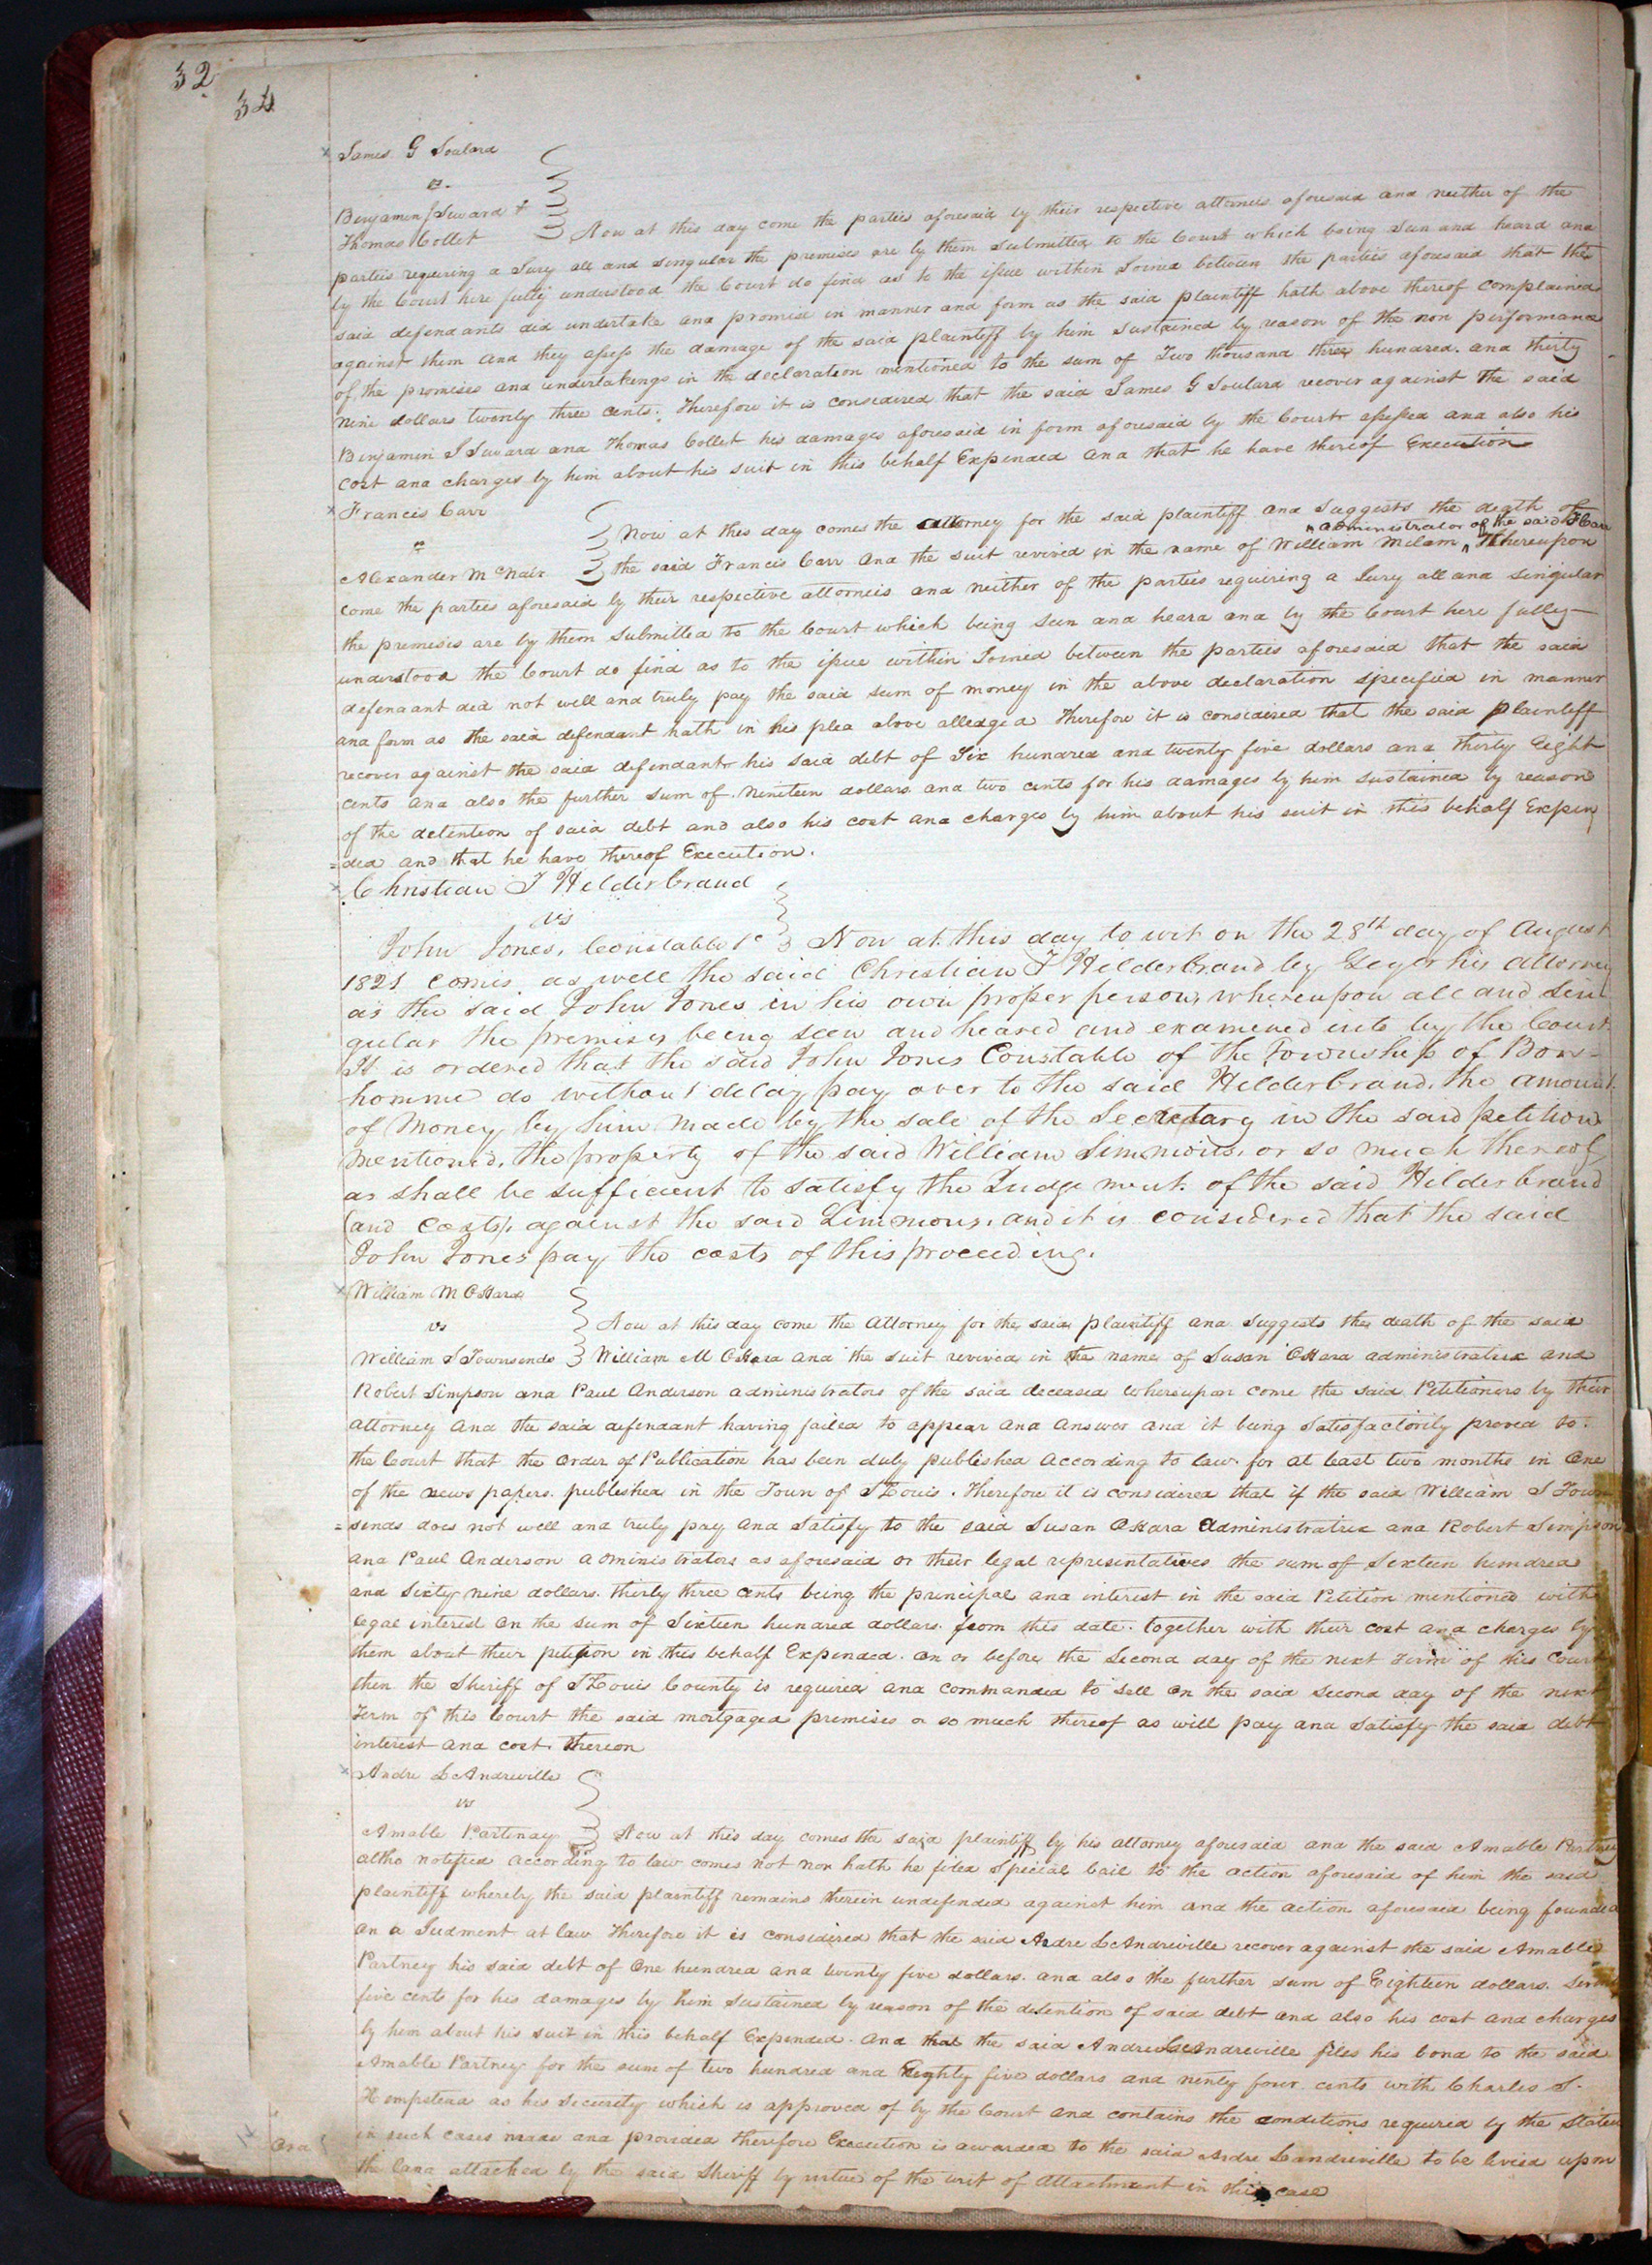 32
34
James G Soulard
vs.
Benjamin J Seward &
Thomas Collet Now at this day come the parties aforesaid by their respective attorneis aforesaid and neither of the
parties requiring a Jury all and singular the premises are by them submitted to the Court which being seen and heard and
by the Court here fully understood the Court do find as to the issue within Joined between the parties aforesaid that the
said defendants did undertake and promise in manner and form as the said plaintiff hath above thereof complained
against them and they assess the damage of the said plaintiff by him sustained by reason of the non performance
of the promises and undertakings in the declaration mentioned to the sum of Two thousand three hundred. and thirty
nine dollars twenty three cents. Therefore it is considered that the said James G Soulard recover against the said
Benjamin J Seward and Thomas Collet his damages aforesaid in form aforesaid by the Court assessed and also his
cost and charges by him about his suit in this behalf Expended and that he have thereof Execution
Francis Carr
vs
Now at this day comes the attorney for the said plaintiff and Suggests the death of
administrator of the said F Carr
Alexander McNair the said Francis Carr and the suit revived in the name of William Milam Whereupon
come the parties aforesaid by their respective attorneis and neither of the parties requiring a Jury all and singular
the premises are by them submitted to the Court which being seen and heard and by the Court here fully
understood the Court do find as to the issue within Joined between the parties aforesaid that the said
defendant did not well and truly pay the said sum of money in the above declaration specified in manner
and form as the said defendant hath in his plea above alledged Therefore it is considered that the said plaintiff
recover against the said defendant his said debt of Six hundred and twenty five dollars and thirty Eight
cents and also the further sum of nineteen dollars and two cents for his damages by him sustained by reason
of the detention of said debt and also his cost and charges by him about his suit in this behalf Expen
=ded and that he have thereof Execution.
Christian T Helderbrand
vs
John Jones, Constable &c Now at this day to wit on the 28th day of August
1821 comes as well the said Christian T Helderbrand by Geyer his attorney
as the said John Jones in his own proper person, whereupon all and sin
gular the premises being seen and heared and examined into by the Court
It is ordered that the said John Jones Constable of the Township of Bon=
homme do without delay pay over to the said Helderbrand, the amount
of Money by him made by the sale of the Secretary in the said petition
mentioned, the property of the said William Simmons, or so much thereof
as shall be sufficient to satisfy the Judgement. of the said Hilderbrand
(and costs) against the said Simmons, and it is considered that the said
John Jones pay the costs of this proceeding.
William M OHara
vs Now at this day come the Attorney for the said plaintiff and Suggests the death of the said
William S Townsends William M OHara and the suit revived in the name of Susan OHara administratrix and
Robert Simpson and Paul Anderson administrators of the said deceased whereupon come the said Petitioners by their
attorney and the said defendant having failed to appear and answer and it being satisfactorily proved to
the Court that the order of Publication has been duly published according to law for at least two months in One
of the news papers published in the Town of St Louis. Therefore it is considered that if the said William S Town
=sends does not well and truly pay and Satisfy to the said Susan OHara Administratrix and Robert Simpson
and Paul Anderson administrators as aforesaid or their legal representatives the sum of Sixteen hundred
and Sixty nine dollars. thirty three cents being the principal and interest in the said Petition mentioned with
legal interest on the sum of Sixteen hundred dollars. from this date. together with their cost and charges by
them about their petition in this behalf Expended. on or before the Second day of the next Term of this Court
then the Sheriff of St Louis County is required and commanded to Sell on the said Second day of the next
Term of this Court the said mortgaged premises or so much thereof as will pay and Satisfy the said debt
interest and cost thereon
Andre L Andreville
vs
Amable Partenay Now at this day comes the said plaintiff by his attorney aforesaid and the said Amable Partney
altho notified according to law comes not nor hath he filed Special bail to the action aforesaid of him the said
plaintiff whereby the said plaintiff remains therein undefended against him and the action aforesaid being founded
on a Judment at law Therefore it is considered that the said Andre L Andreville recover against the said Amable
Partney his said debt of One hundred and twenty five dollars. and also the further sum of Eighteen dollars.
five cents for his damages by him sustained by reason of the detention of said debt and also his cost and charges
by him about his suit in this behalf Expended. and that the said Andre Landreville files his bond to the said
Amable Partney for the sum of two hundred and Eighty five dollars and ninty four cents with Charles S.
Hempstead as his Security which is approved of by the Court and contains the conditions required by the Statute
in such cases made and provided therefore Execution is awarded to the said Andre Landreville to be levied upon
the land attached by the said Sheriff by virtue of the writ of Attachment in this case